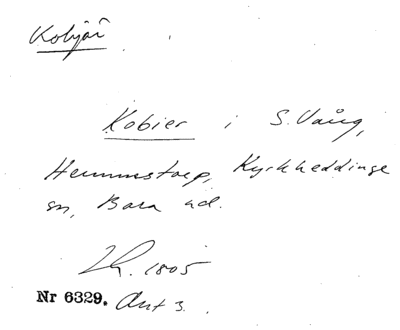 Kobjär
Kobier i S. Vång,
Hemmestorp, Kyrkheddinge
sn, Bara hd.
1805
Nr 6329. Akt 3.